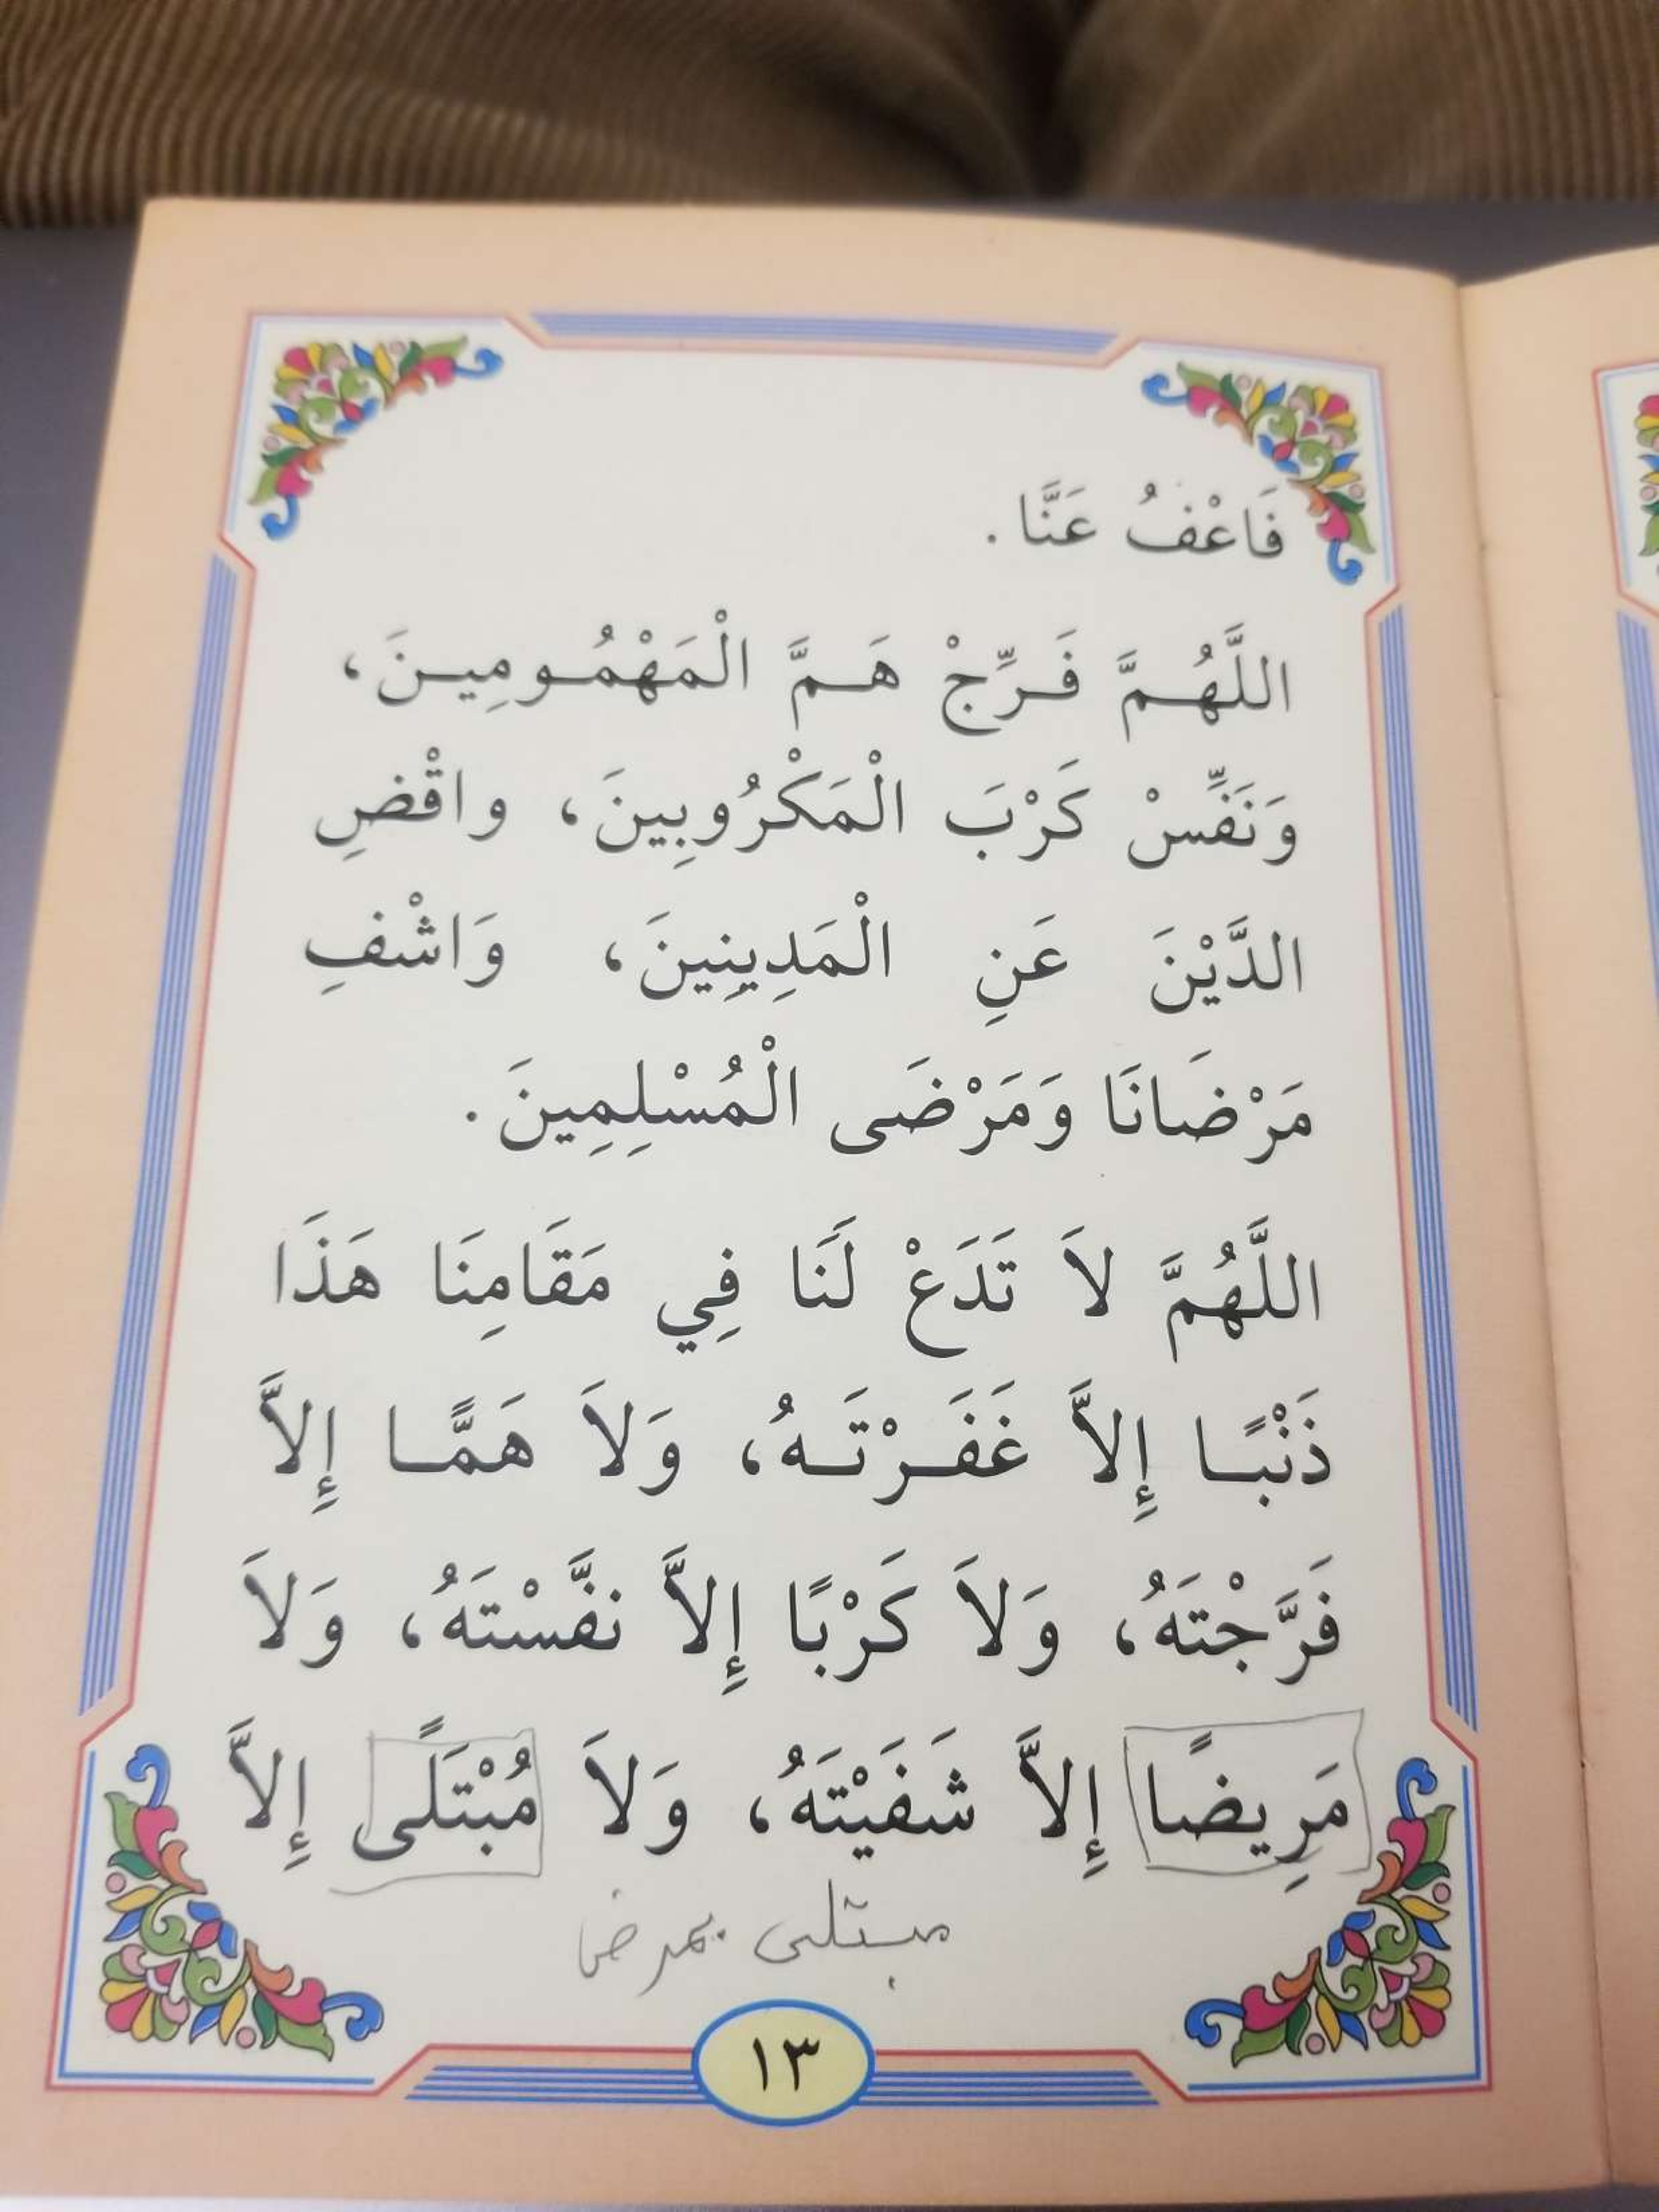 فَاعْفُ عَنَّا .
اللَّهُمَّ فَرِّجْ هَمَّ الْمَهْمُومِينَ،
وَنَفِّسْ كَرْبَ الْمَكْرُوبِينَ، واقْضِ
الدَّيْنَ عَنِ الْمَدِينِينَ، وَاشْفِ
مَرْضَانَا وَمَرْضَى الْمُسْلِمِينَ .
اللَّهُمَّ لاَ تَدَعْ لَنَا فِي مَقَامِنَا هَذَا
ذَنْبًا إِلاَّ غَفَرْتَهُ، وَلاَ هَمًّا إِلاَّ
فَرَّجْتَهُ، وَلاَ كَرْبًا إِلاَّ نفَّسْتَهُ، وَلاَ
مَرِيضًا إِلاَّ شَفَيْتَهُ، وَلاَ مُبْتَلًى إِلاَّ
مبتلى بمرض
١٣